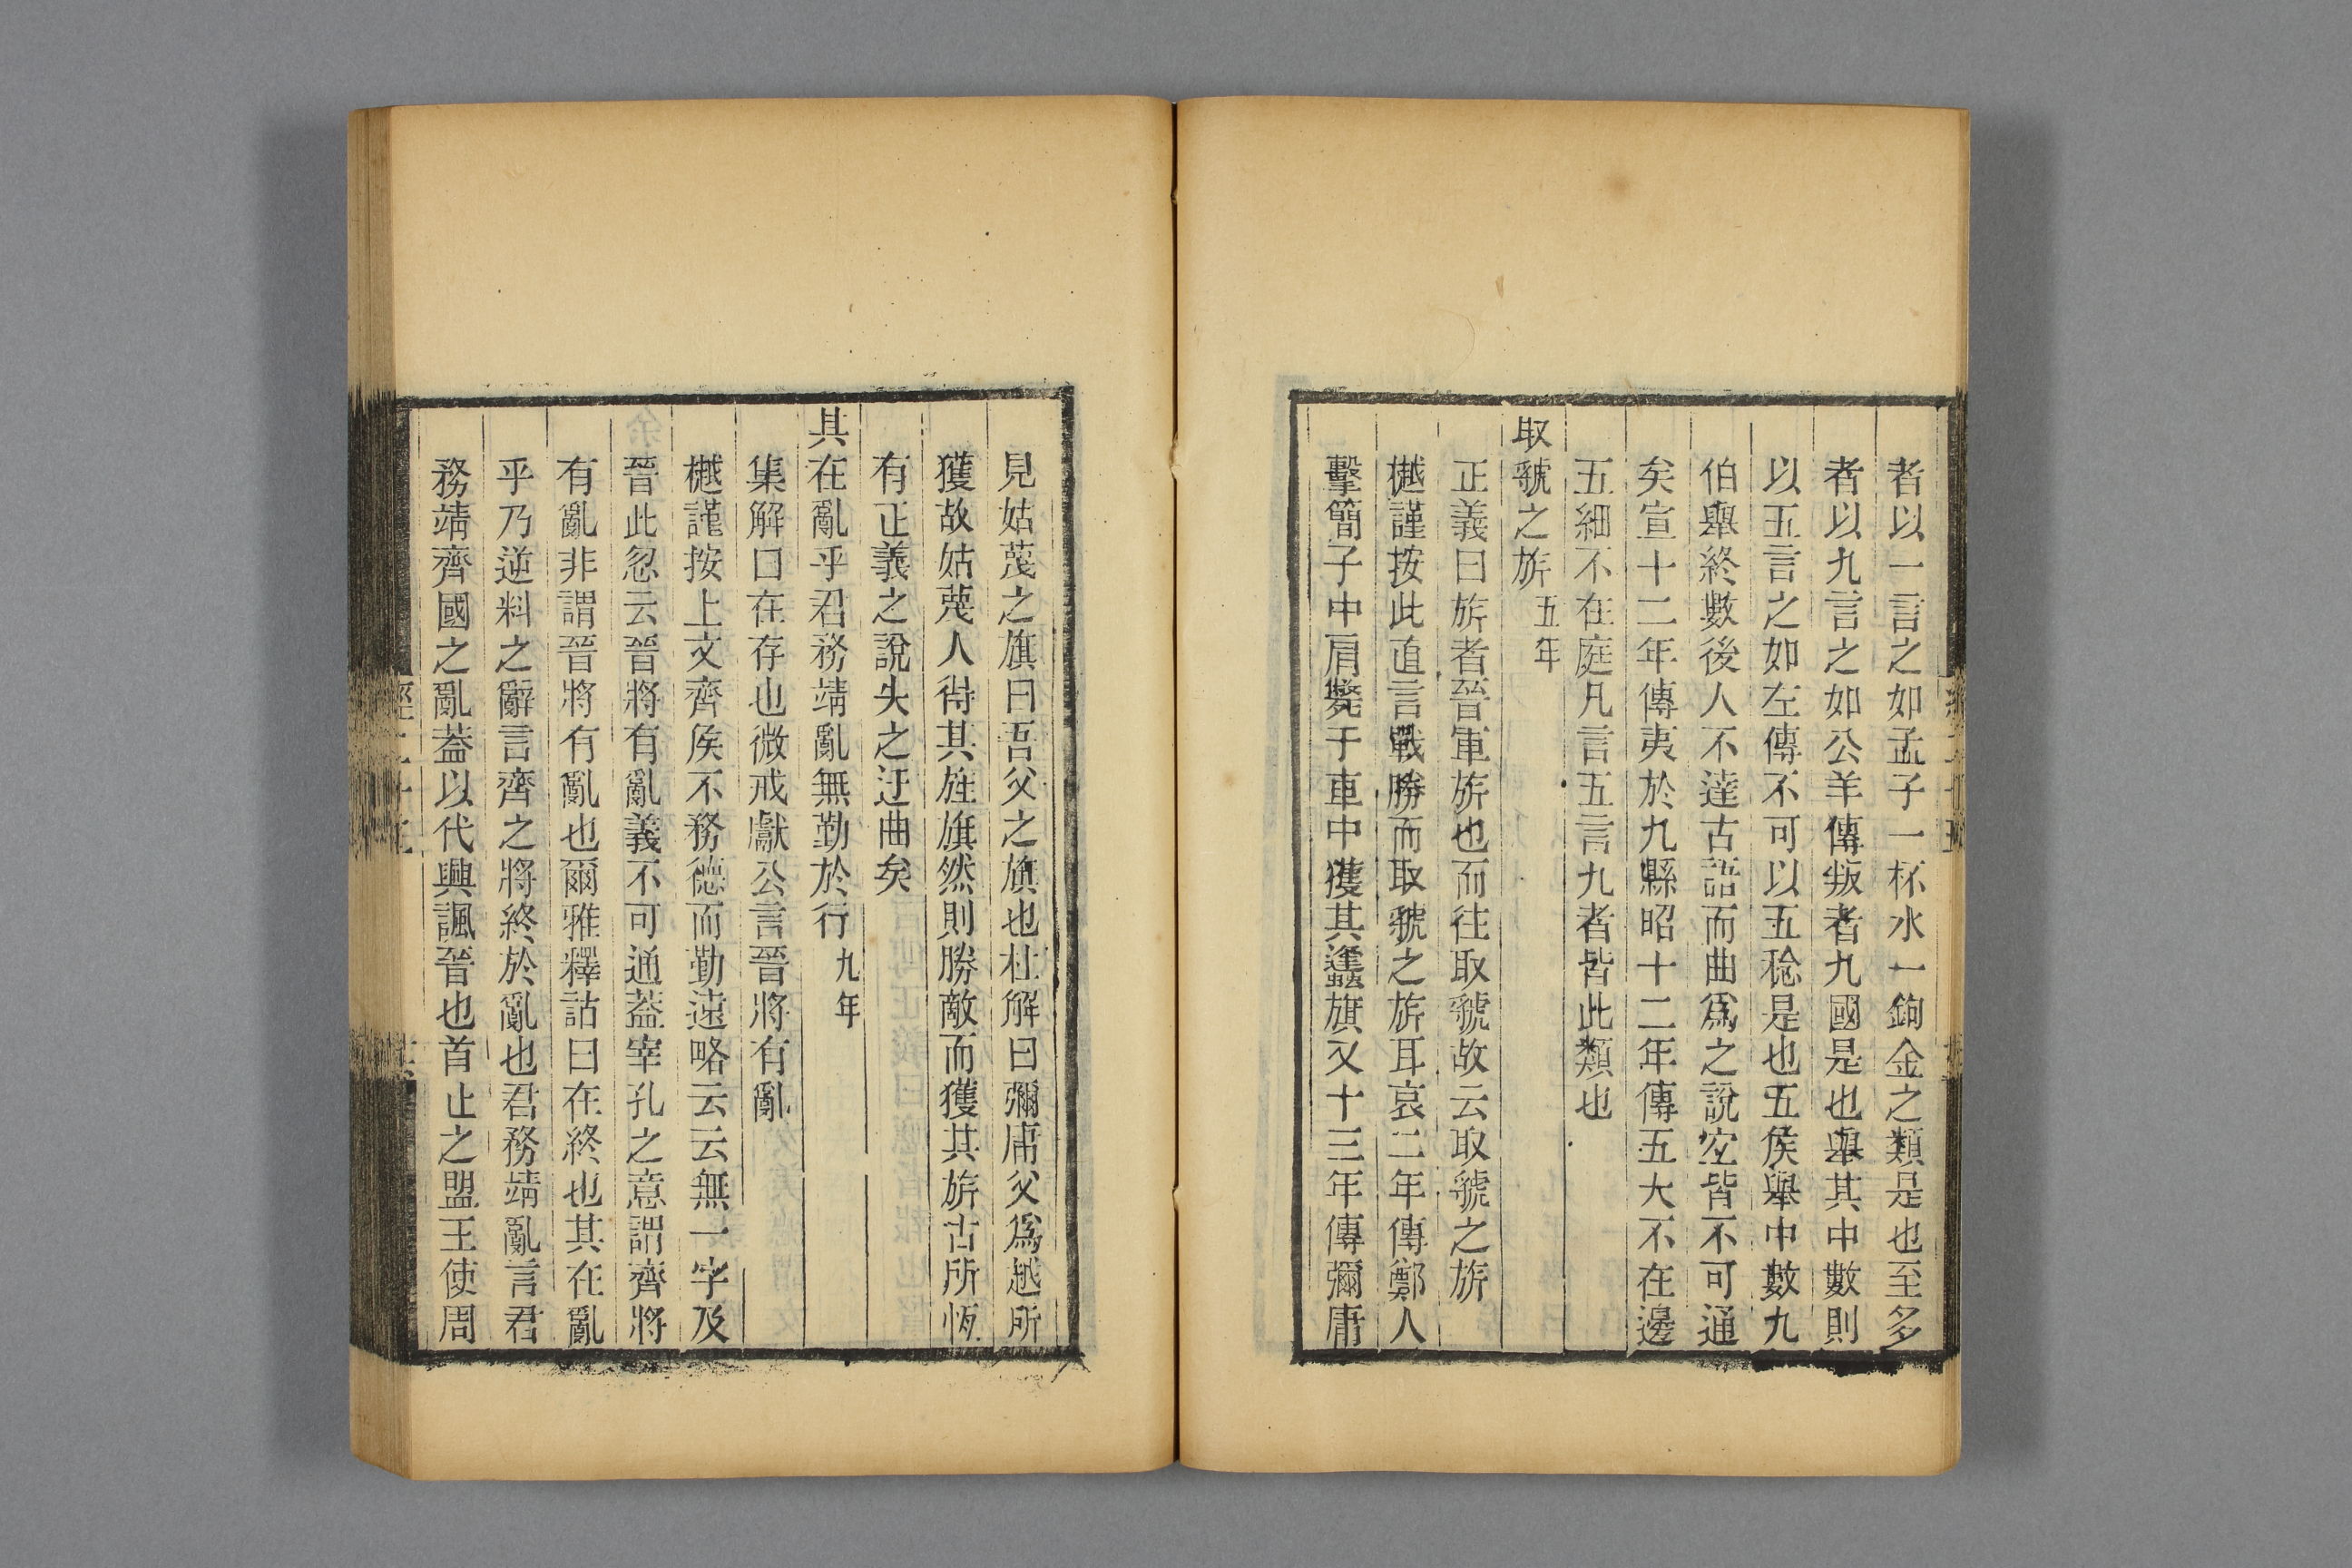 者以一言之如孟子一杯水一鉤金之類是也至多
者以九言之如公羊傳叛者九國是也舉其中數則
以五言之如左傳不可以五稔是也五侯舉中數九
伯舉終數後人不達古語而曲爲之說空皆不可通
矣宣十二年傳夷於九縣昭十二年傳五大不在邊
五細不在庭凡言五言九者皆此類也
取虢之旂五年
正義曰旂者晉軍旂也而往取虢故云取虢之旂
樾謹按此直言戰勝而取虢之旂耳哀二年傳鄭人
擊簡子中肩斃于車中獲其蠭旗又十三年傳彌庸
見姑蔑之旗曰吾父之旗也杜解曰彌庸父爲越所
獲故姑蔑人得其旌旗然則勝敵而獲其旂古所恆
有正義之說失之迂曲矣
其在亂乎君務靖亂無勤於行九年
集解曰在存也微戒獻公言晉將有亂
樾謹按上文齊侯不務德而勤遠略云云無一字及
晉此忽云晉將有亂義不可通蓋宰孔之意謂齊將
有亂非謂晉將有亂也爾雅釋詁曰在終也其在亂
乎乃逆料之辭言齊之將終於亂也君務靖亂言君
務靖齊國之亂蓋以代興諷晉也首止之盟王使周